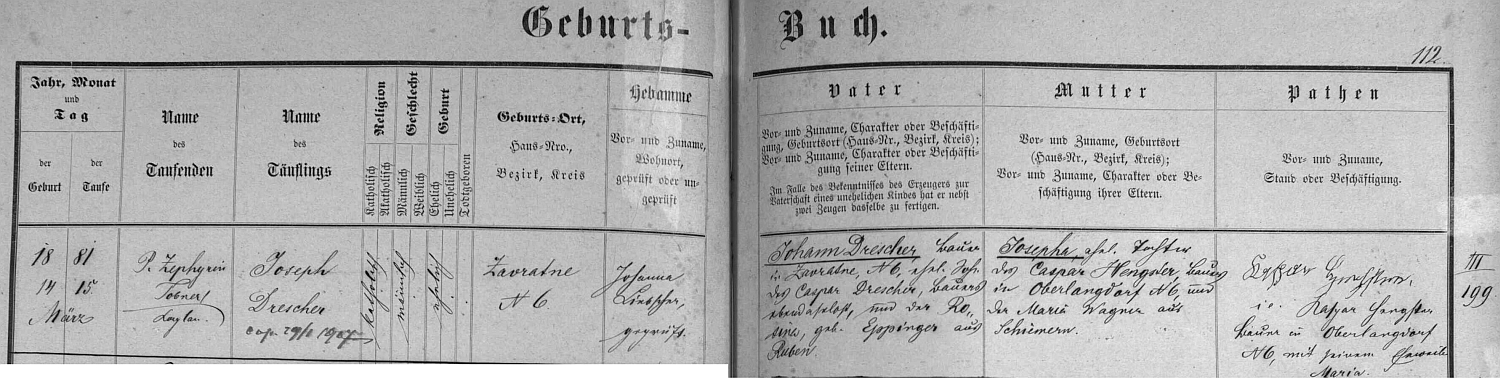 Geburts-
Buch.
112
Jahr, Monat
und
Tag
der
Geburt
der
Taufe
Name
des
Taufenden
Name
des
Täuflings
Religion
Katholisch
Akatholisch
Geschlecht
Männlich
Weiblich
Geburt
Ehelich
Unehelich
Todtgeboren
Geburts-Ort,
Haus-Nro.,
Bezirk, Kreis
Hebamme
Vor- und Zuname,
Wohnort,
geprüft oder un-
geprüft
Vater
Vor- und Zuname, Charakter oder Beschäfti-
gung, Geburtsort (Haus-Nr., Bezirk, Kreis);
Vor- und Zuname, Charakter oder Beschäfti-
gung seiner Eltern.
Im Falle des Bekenntnisses des Erzeugers zur
Vaterschaft eines unehelichen Kindes hat er nebst
zwei Zeugen dasselbe zu fertigen.
Mutter
Vor- und Zuname, Geburtsort
(Haus-Nr., Bezirk, Kreis);
Vor- und Zuname, Charakter oder Be-
schäftigung ihrer Eltern.
Pathen
Vor- und Zuname,
Stand oder Beschäftigung.
18 81
14 15.
März
P. Zephyrin
Tobner
Joseph
Drescher
katholisch
männlich
ehelich
Zavratne
N 6.
Johanna
geprüft.
Johann Drescher, Bauer
in Zavratne, N6, ehel. Sohn
des Caspar Drescher, Bauers
ebendaselbst, und der Ro-
sina, geb. Eppinger aus
Ruben.
Josepha, ehel. Tochter
des Caspar Hengster, Bauers
in Oberlangdorf N6, und
der Maria Wagner aus
Schümern.
i. e. Kaspar Hengster
Bauer in Oberlangdorf
N6, mit seinem Eheweibe
Maria.
III
199